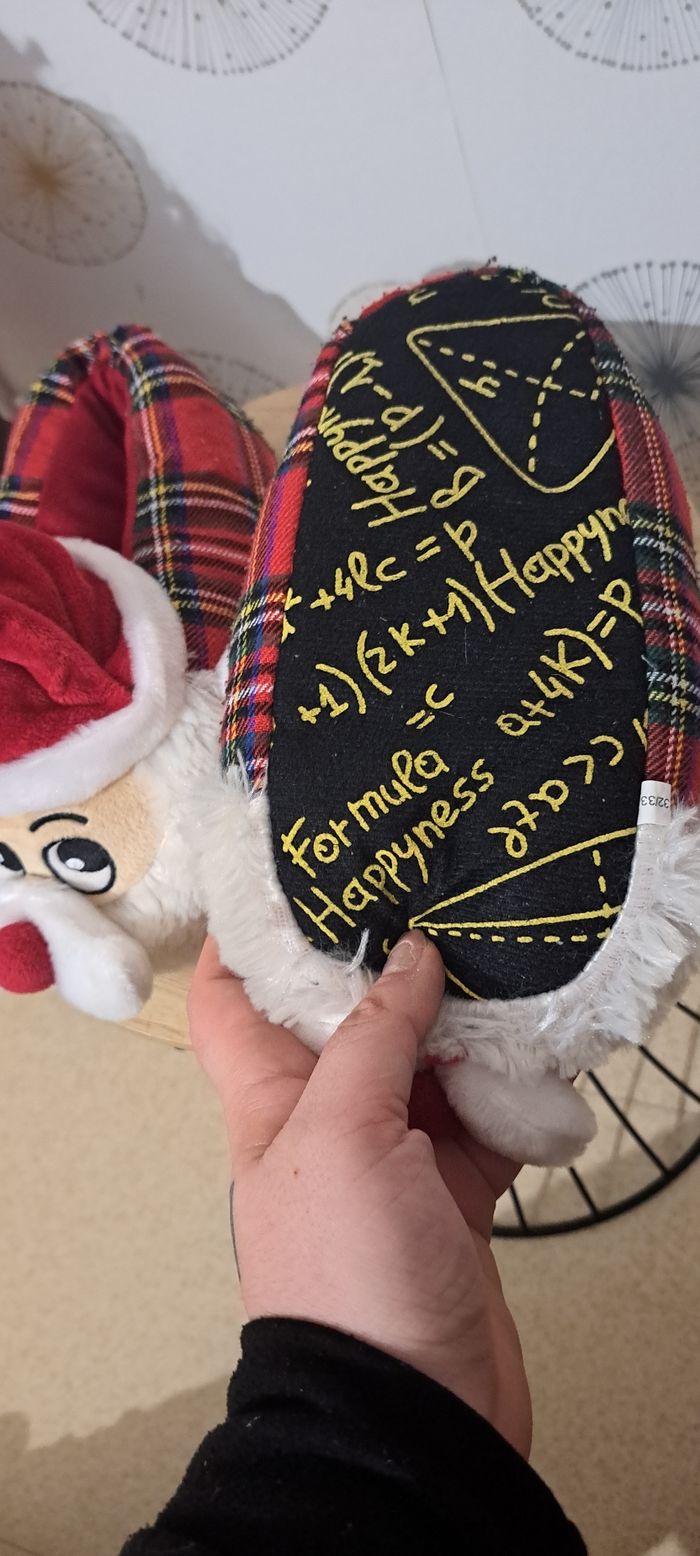 h
= (p-1)
Happyn
+4lc = p
+1)(2k+1)Happyn
=c
a+4K)=P
Formula
Happyness
32/33